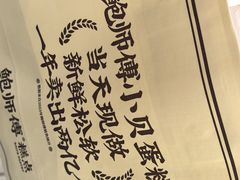 鲍师傅小贝蛋糕
当天现做
新鲜松软
一年卖出两亿
鲍师傅®糕点